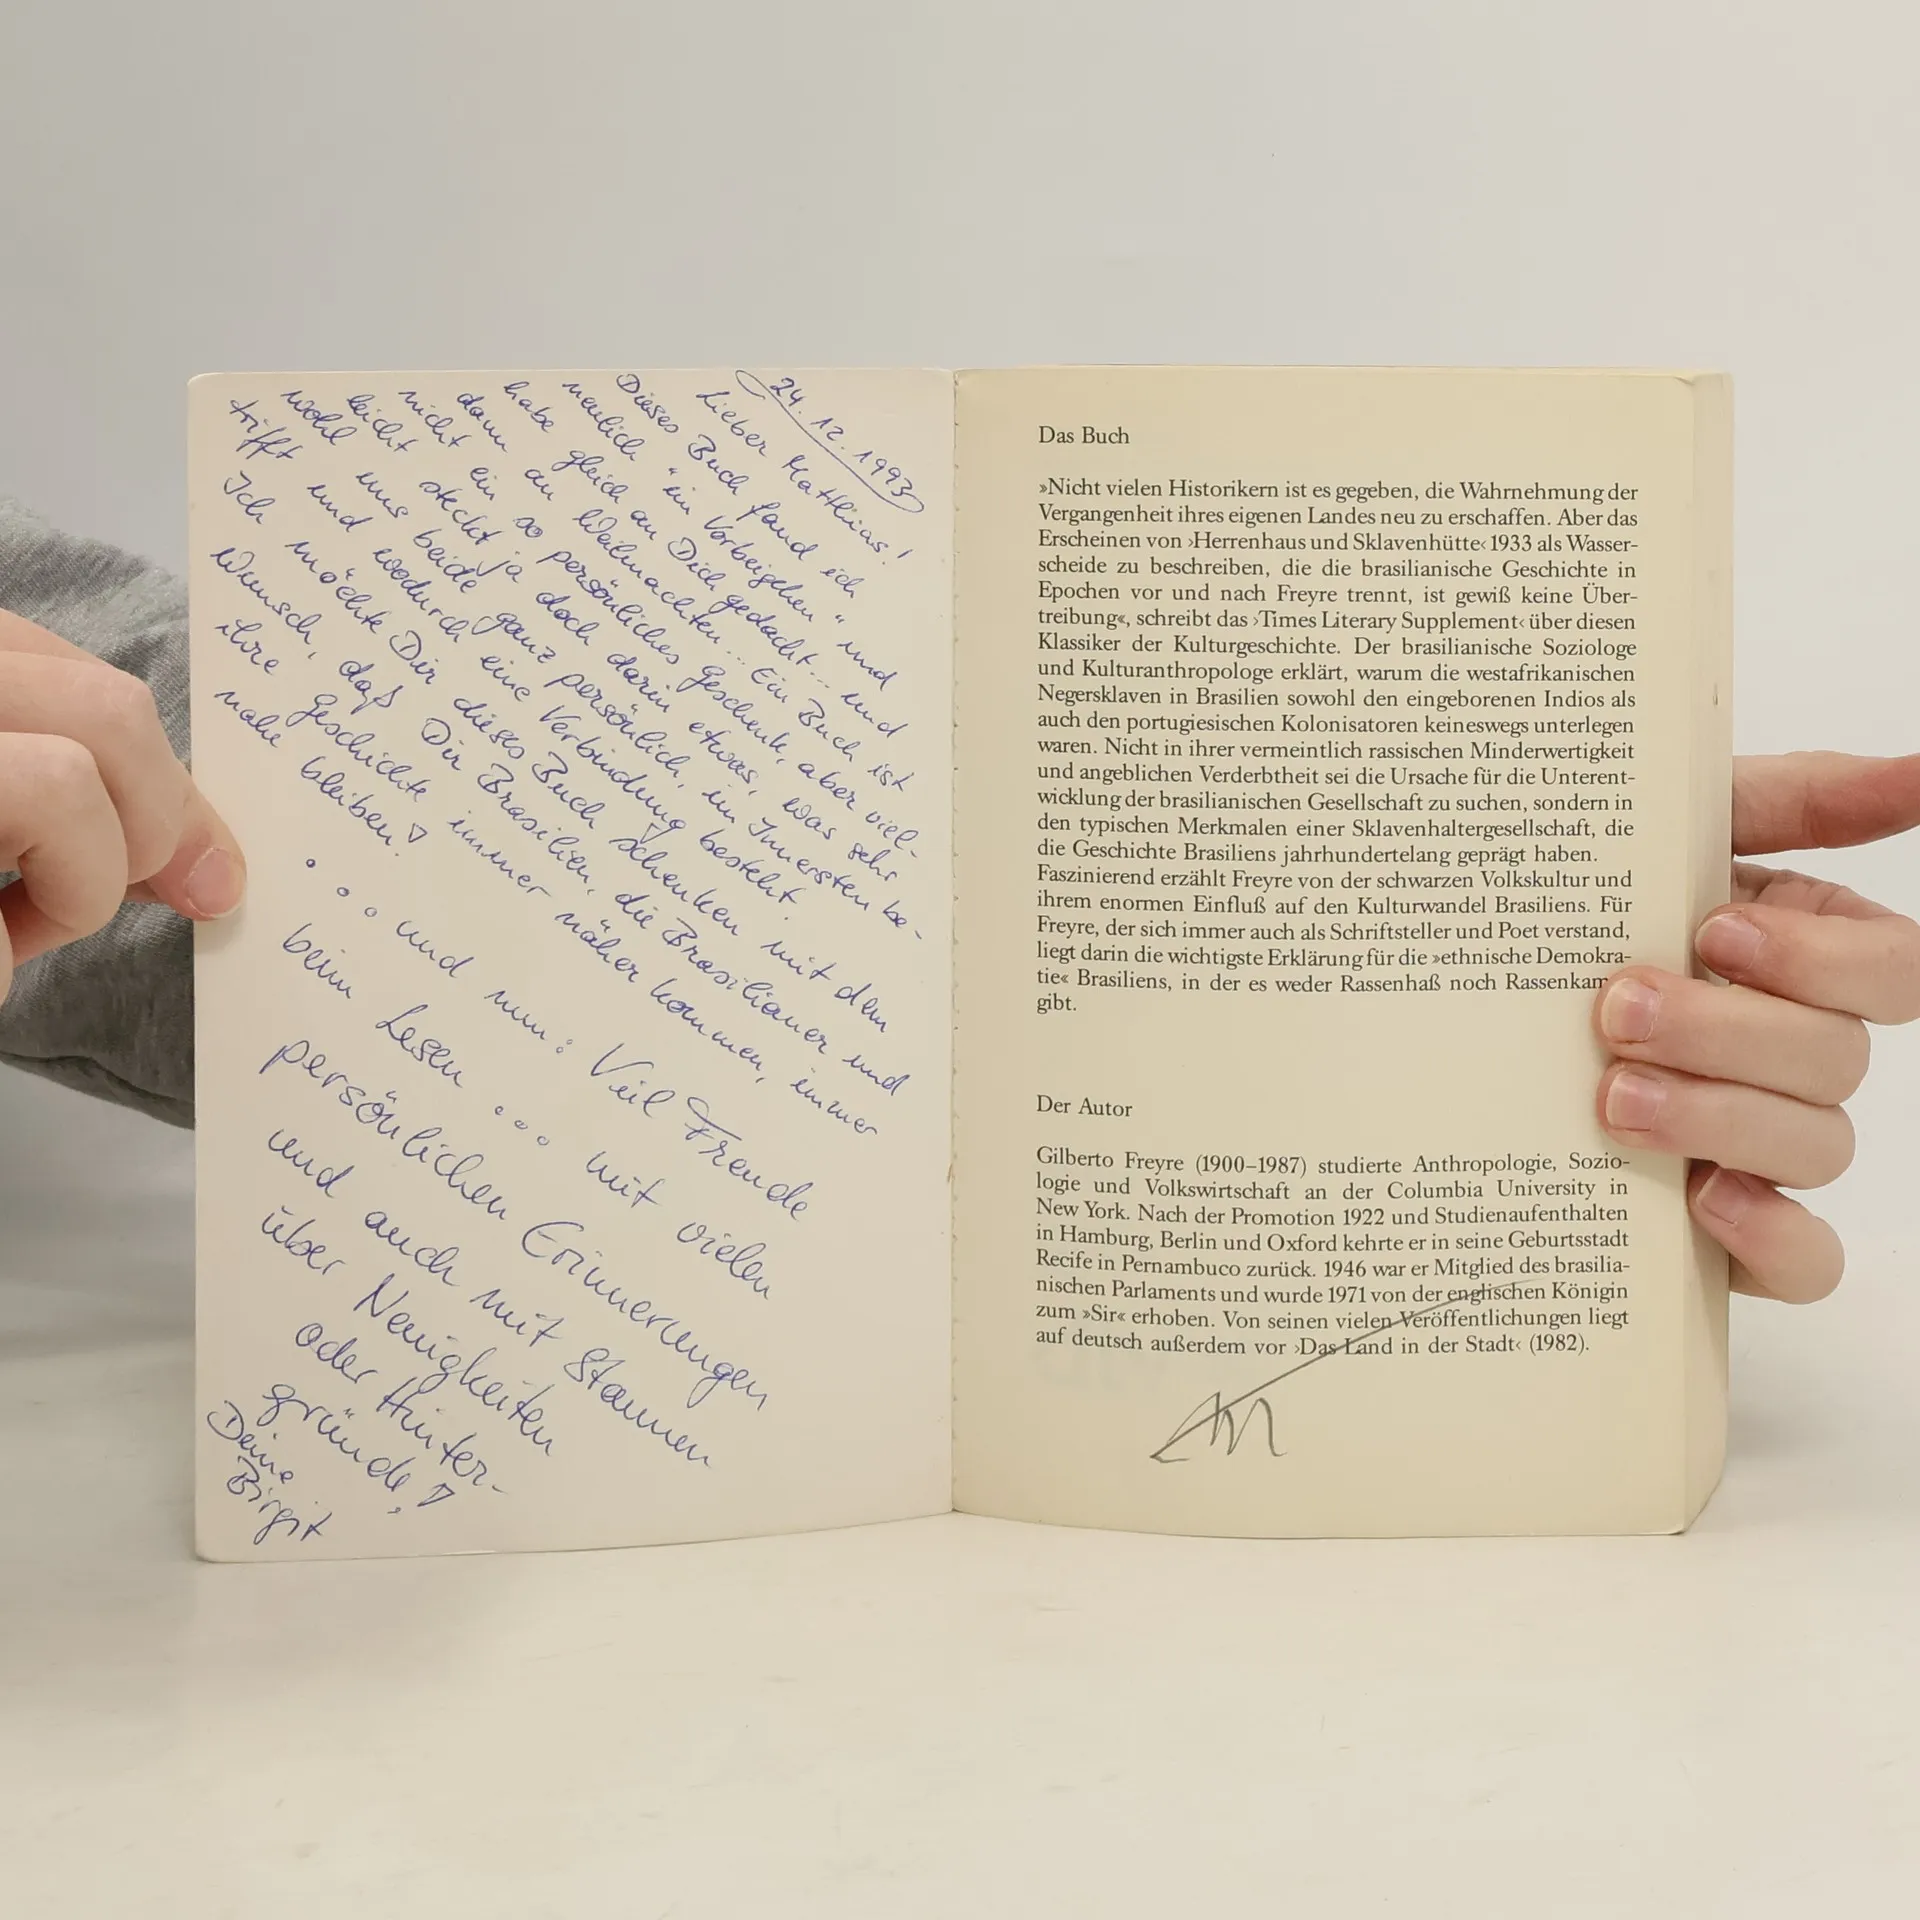 24.12.1993
Lieber Matthias!
Dieses Buch fand ich
neulich "im Vorbeigehen" und
habe gleich an Dich gedacht... und
dann an Weihnachten... Ein Buch ist
nicht ein so persönliches Geschenk, aber viel-
leicht steckt ja doch darin etwas, was sehr
wohl uns beide ganz persönlich, im Innersten be-
trifft und wodurch eine Verbindung besteht.
Ich möchte Dir dieses Buch schenken mit dem
Wunsch, daß Dir Brasilien, die Brasilianer und
ihre Geschichte immer näher kommen, immer
nahe bleiben!
... und nun: Viel Freude
beim Lesen ... mit vielen
persönlichen Erinnerungen
und auch mit Staunen
über Neuigkeiten
oder Hinter-
gründe!
Deine
Birgit
Das Buch
»Nicht vielen Historikern ist es gegeben, die Wahrnehmung der
Vergangenheit ihres eigenen Landes neu zu erschaffen. Aber das
Erscheinen von ›Herrenhaus und Sklavenhütte‹ 1933 als Wasser-
scheide zu beschreiben, die die brasilianische Geschichte in
Epochen vor und nach Freyre trennt, ist gewiß keine Über-
treibung«, schreibt das ›Times Literary Supplement‹ über diesen
Klassiker der Kulturgeschichte. Der brasilianische Soziologe
und Kulturanthropologe erklärt, warum die westafrikanischen
Negersklaven in Brasilien sowohl den eingeborenen Indios als
auch den portugiesischen Kolonisatoren keineswegs unterlegen
waren. Nicht in ihrer vermeintlich rassischen Minderwertigkeit
und angeblichen Verderbtheit sei die Ursache für die Unterent-
wicklung der brasilianischen Gesellschaft zu suchen, sondern in
den typischen Merkmalen einer Sklavenhaltergesellschaft, die
die Geschichte Brasiliens jahrhundertelang geprägt haben.
Faszinierend erzählt Freyre von der schwarzen Volkskultur und
ihrem enormen Einfluß auf den Kulturwandel Brasiliens. Für
Freyre, der sich immer auch als Schriftsteller und Poet verstand,
liegt darin die wichtigste Erklärung für die »ethnische Demokra-
tie« Brasiliens, in der es weder Rassenhaß noch Rassenkam
gibt.
Der Autor
Gilberto Freyre (1900–1987) studierte Anthropologie, Sozio-
logie und Volkswirtschaft an der Columbia University in
New York. Nach der Promotion 1922 und Studienaufenthalten
in Hamburg, Berlin und Oxford kehrte er in seine Geburtsstadt
Recife in Pernambuco zurück. 1946 war er Mitglied des brasilia-
nischen Parlaments und wurde 1971 von der englischen Königin
zum »Sir« erhoben. Von seinen vielen Veröffentlichungen liegt
auf deutsch außerdem vor ›Das Land in der Stadt‹ (1982).